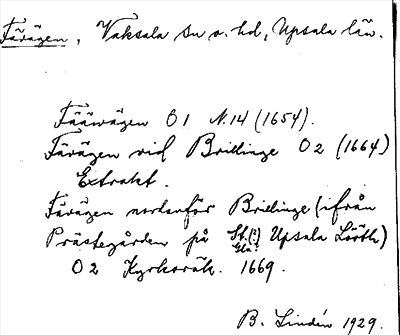 Färägen, Vaksala sn o. hd, Upsala län.
Fääwägen O1 N.14 (1654).
Färägen vid Brillinge O2 (1664)
Extrakt.
Färägen nordanför Brillinge (ifrån
Prästegården på St. (:) Upsala Lööth)
Gla:
O2 Kyrkoräk. 1669.
B. Lindén 1929.